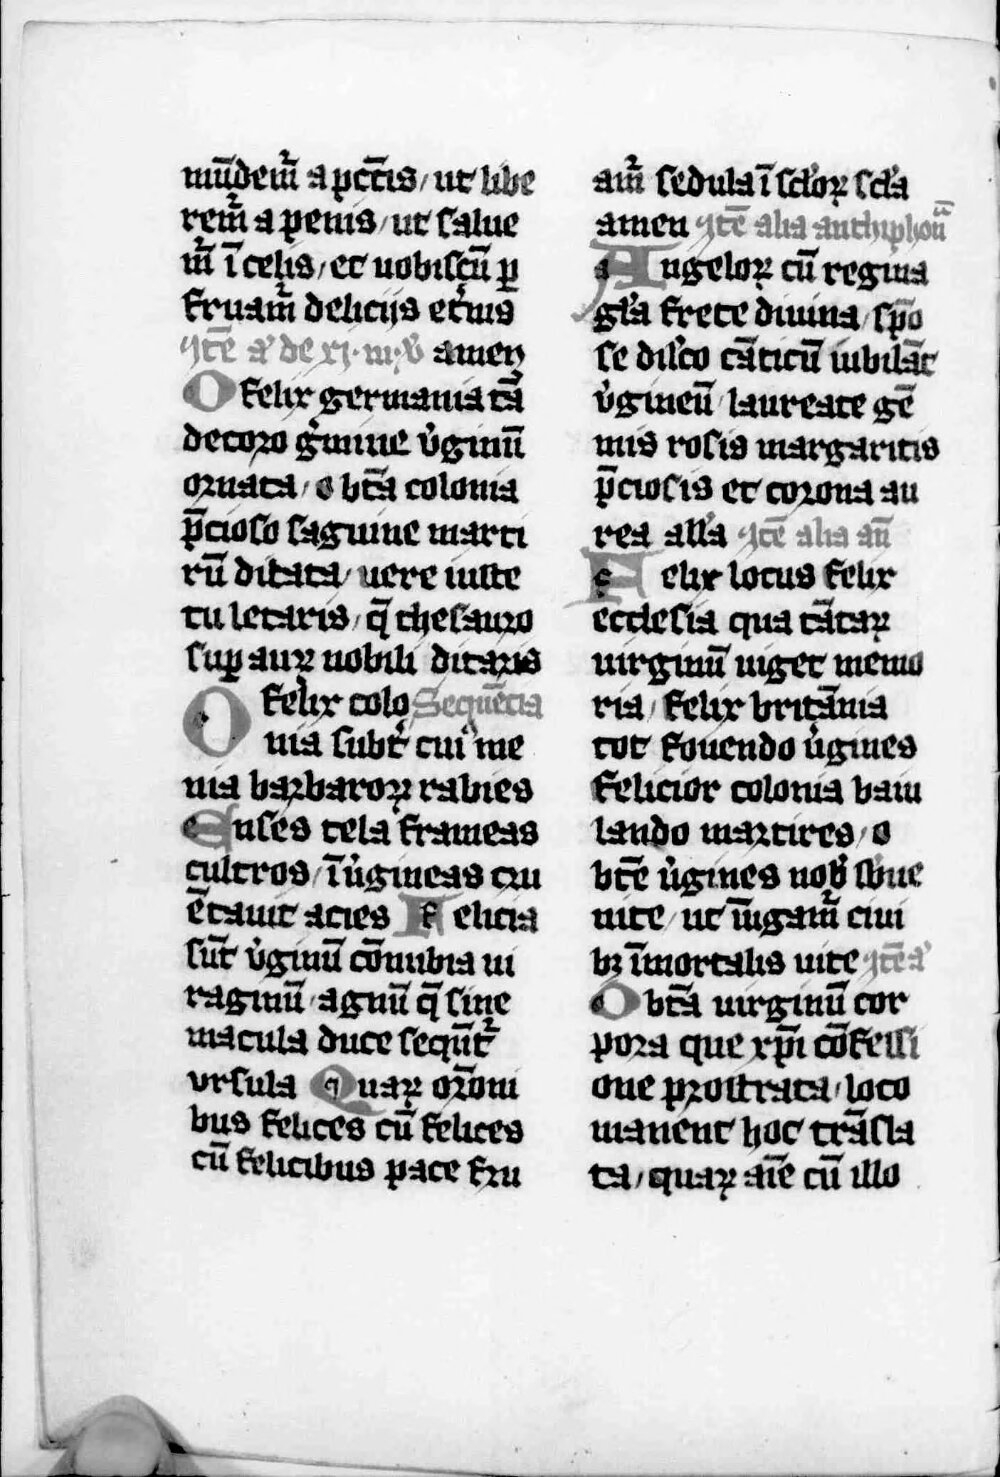 mūdem̄ a pctīs / ut libe
rem̄ a penis / ut salue
m̄ ī celis / et uobiscū ꝑ
fruam̄ delicijs et̄nis
Itē a͛ de xj · m · v͛ amen
O felix germania tā
decoro g̍mine v̍ginū
ornata / o btā colonia
p̄cioso saguine marti
rū ditata / uere iuste
tu letaris / q̄ thesauro
suꝑ auꝝ nobili ditaris
O felix colo Sequētia
nia subt̄ cuiꝰ me
nia barbaroꝝ rabies
Enses tela frameas
cultros / ī v̍gineas cru
ētauit acies Felicia
sūt v̍ginū cōnubia ui
raginū / agnū q̄ sine
macula duce sequūt͛
vrsula Quaꝝ or̄oni
bus felices cū felices
cū felicibus pace fru
am̄ sedula ī sc̄loꝝ sc̄la
amen Itē alia anthiphon̄
Angeloꝝ cū regina
gl̄a frete diuina / spō
se dilco cāticū iubilāt
v̍gineū / laureate gē
mis rosis margaritis
p̄ciosis et corona au
rea all̄a Itē alia an̄
Felix locus felix
ecclesia qua cātaꝝ
uirginū uiget memo
ria / felix britānia
tot fouendo v̍gines
felicior colonia baiu
lando martires / o
btē v̍gines nob̄ sb̄ue
nite / ut īūgam̄ ciui
bꝫ īmortalis uite Itē a͛
O btā uirginū cor
pora que xp̄i cōfessi
one prostrata / loco
manent hoc trāsla
ta / quaꝝ aīe cū illo